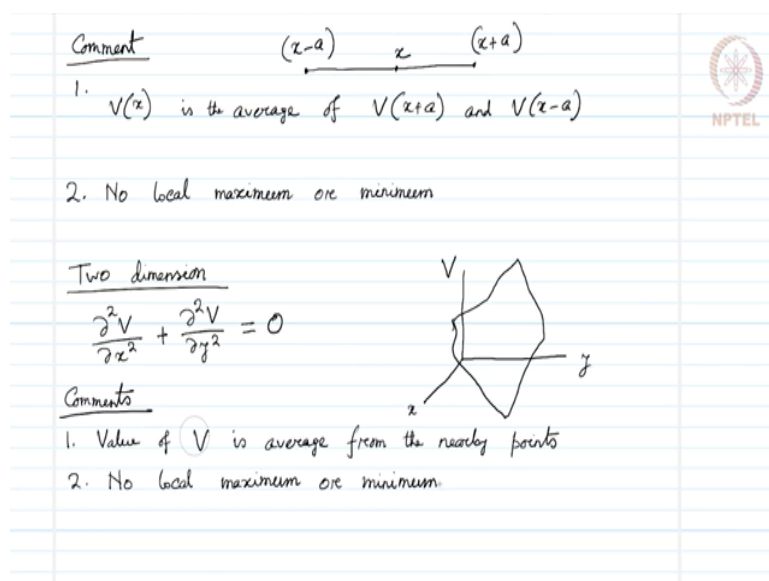 Comment
(x-a) x (x+a)
1.
V(x) is the average of V(x+a) and V(x-a)
NPTEL
2. No local maximum ore minimum
Two dimension
∂²V/∂x² + ∂²V/∂y² = 0
V
y
x
Comments
1. Value of V is average from the nearby points
2. No local maximum ore minimum.